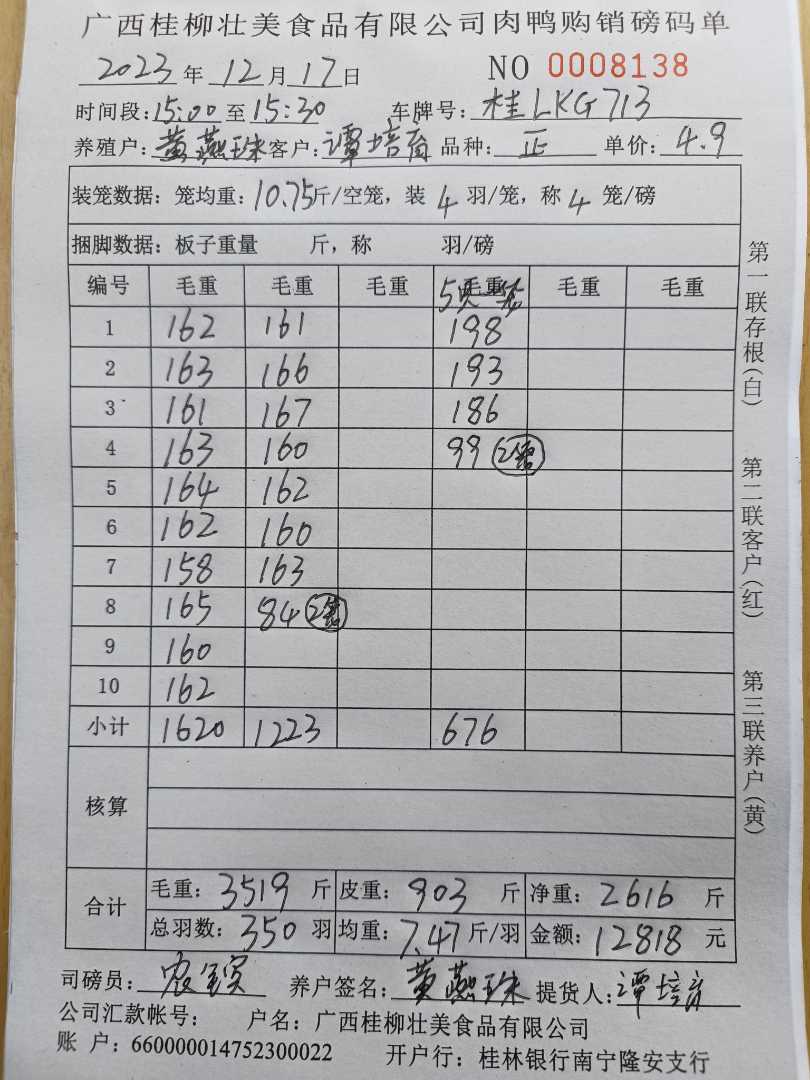 广西桂柳壮美食品有限公司肉鸭购销磅码单
2023年12月17日 NO 0008138
时间段:15:00至15:30 车牌号:桂LKG713
养殖户:黄燕珠 客户:谭培育 品种:正 单价:4.9
装笼数据:笼均重:10.75斤/空笼,装4羽/笼,称4笼/磅
捆脚数据:板子重量 斤,称 羽/磅
编号 毛重 毛重 毛重 5只/笼 毛重 毛重 毛重
1 162 161 198
2 163 166 193
3 161 167 186
4 163 160 99 2笼
5 164 162
6 162 160
7 158 163
8 165 84 2笼
9 160
10 162
小计 1620 1223 676
核算
合计 毛重:3519斤 皮重:903斤 净重:2616斤
总羽数:350羽 均重:7.47斤/羽 金额:12818元
司磅员: 养户签名:黄燕珠 提货人:谭培育
公司汇款帐号: 户名:广西桂柳壮美食品有限公司
账 户:660000014752300022 开户行:桂林银行南宁隆安支行
第一联存根(白)
第二联客户(红)
第三联养户(黄)